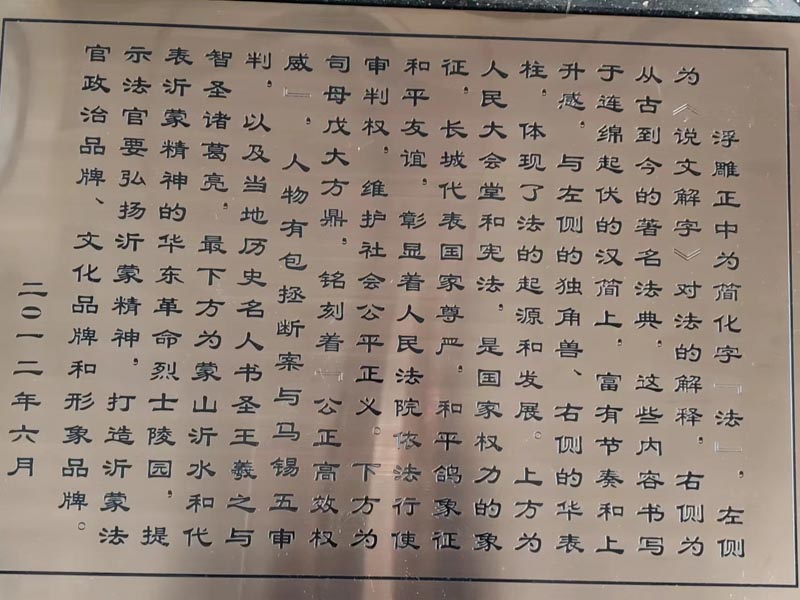 浮雕正中为简化字『法』，左侧
为《说文解字》对法的解释，右侧为
从古到今的著名法典，这些内容书写
于连绵起伏的汉简上，富有节奏和上
升感，与左侧的独角兽、右侧的华表
柱，体现了法的起源和发展。上方为
人民大会堂和宪法，是国家权力的象
征，长城代表国家尊严，和平鸽象征
和平友谊，彰显着人民法院依法行使
审判权，维护社会公平正义。下方为
司母戊大方鼎，铭刻着『公正高效权
威』，人物有包拯断案与马锡五审
判，以及当地历史名人书圣王羲之与
智圣诸葛亮，最下方为蒙山沂水和代
表沂蒙精神的华东革命烈士陵园，提
示法官要弘扬沂蒙精神，打造沂蒙法
官政治品牌、文化品牌和形象品牌。
二〇一二年六月